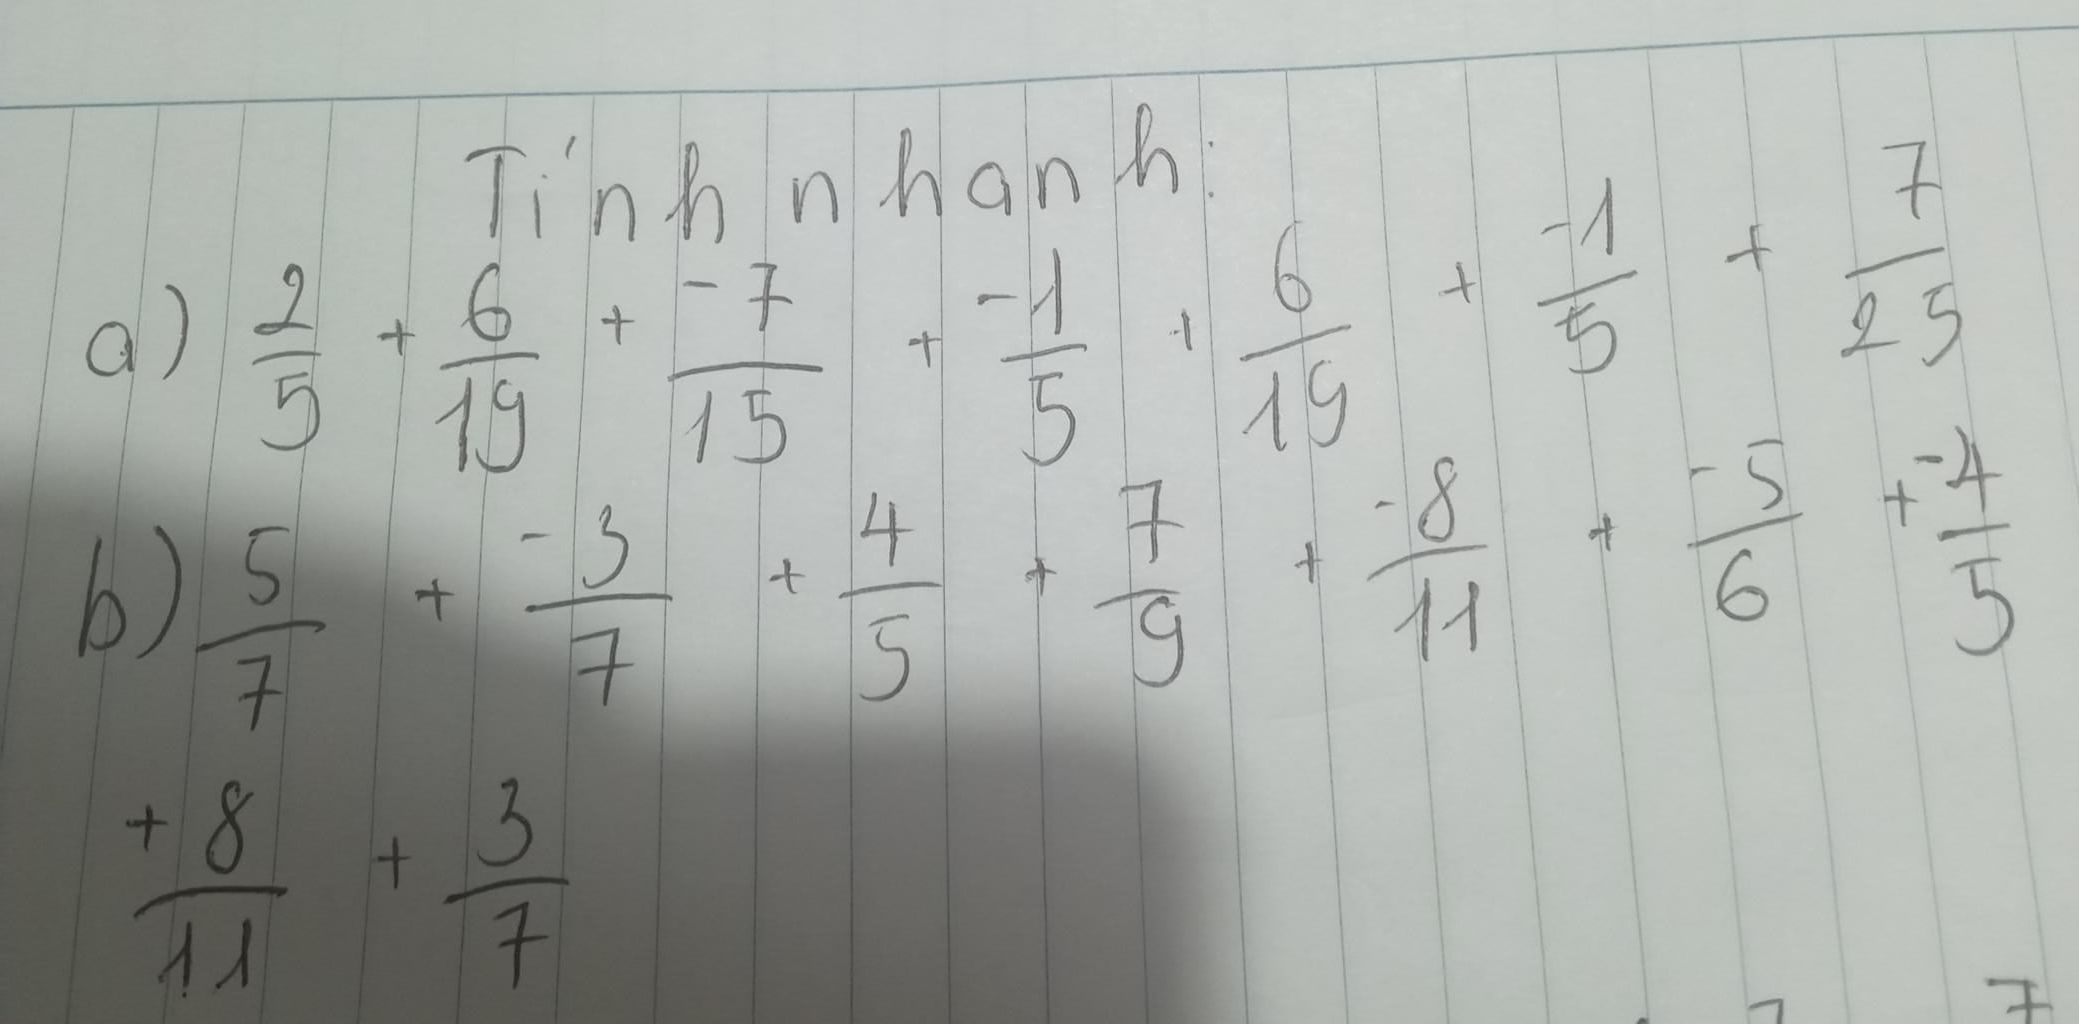 Tính nhanh:
a) 2/5 + 6/19 + -7/15 + -1/5 + 6/19 + -1/5 + 7/25
b) 5/7 + -3/7 + 4/5 + 7/9 + -8/11 + -5/6 + -4/5
+ 8/11 + 3/7
7